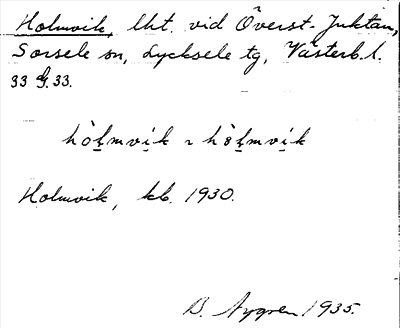 Holmvik, lht. vid Överst-Juktan,
Sorsele sn, Lycksele tg, Västerb. l.
33 G. 33.
hòłmvik ~ hòłmvik
Holmvik, kb. 1930.
B. Nygren 1935.